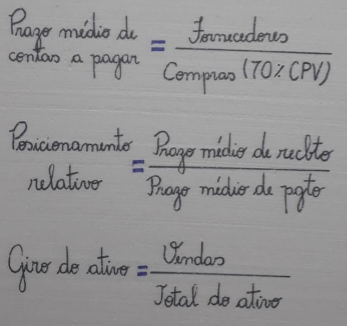 Prazo médio de
contas a pagar = Fornecedores
Compras (70% CPV)
Posicionamento
relativo = Prazo médio de recbto
Prazo médio de pgto
Giro do ativo = Vendas
Total do ativo